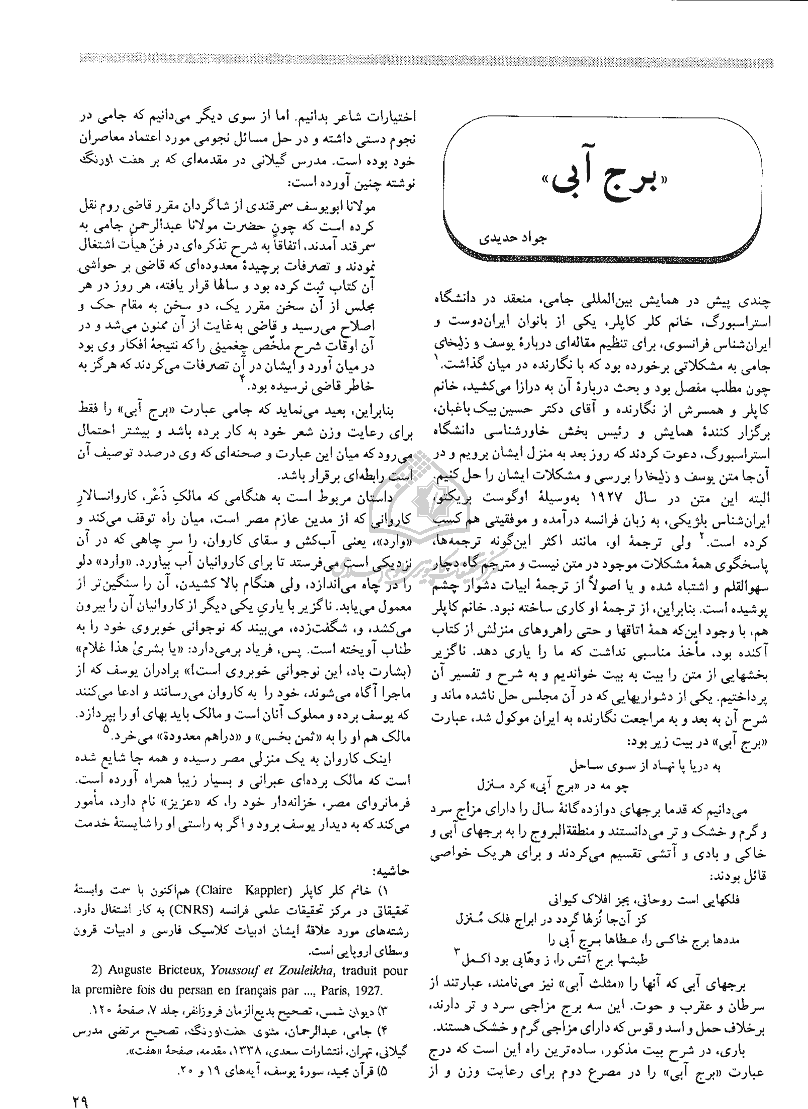 «برج آبی»
جواد حدیدی
چندی پیش در همایش بین‌المللی جامی، منعقد در دانشگاه
استراسبورگ، خانم کلر کاپلر، یکی از بانوان ایران‌دوست و
ایران‌شناس فرانسوی، برای تنظیم مقاله‌ای دربارهٔ یوسف و زلیخای
جامی به مشکلاتی برخورده بود که با نگارنده در میان گذاشت.۱
چون مطلب مفصل بود و بحث دربارهٔ آن به درازا می‌کشید، خانم
کاپلر و همسرش از نگارنده و آقای دکتر حسین بیک‌باغبان،
برگزار کنندهٔ همایش و رئیس بخش خاورشناسی دانشگاه
استراسبورگ، دعوت کردند که روز بعد به منزل ایشان برویم و در
آن‌جا متن یوسف و زلیخا را بررسی و مشکلات ایشان را حل کنیم.
البته این متن در سال ۱۹۲۷ به‌وسیلهٔ اوگوست بریکتو،
ایران‌شناس بلژیکی، به زبان فرانسه درآمده و موفقیتی هم کسب
کرده است.۲ ولی ترجمهٔ او، مانند اکثر این‌گونه ترجمه‌ها،
پاسخگوی همهٔ مشکلات موجود در متن نیست و مترجم گاه دچار
سهوالقلم و اشتباه شده و یا اصولاً از ترجمهٔ ابیات دشوار چشم
پوشیده است. بنابراین، از ترجمهٔ او کاری ساخته نبود. خانم کاپلر
هم، با وجود این‌که همهٔ اتاقها و حتی راهروهای منزلش از کتاب
آکنده بود، مأخذ مناسبی نداشت که ما را یاری دهد. ناگزیر
بخشهایی از متن را بیت به بیت خواندیم و به شرح و تفسیر آن
پرداختیم. یکی از دشواریهایی که در آن مجلس حل ناشده ماند و
شرح آن به بعد و به مراجعت نگارنده به ایران موکول شد، عبارت
«برج آبی» در بیت زیر بود:
به دریا پا نهاد از سوی ساحل
چو مه در «برج آبی» کرد منزل
می‌دانیم که قدما برجهای دوازده‌گانهٔ سال را دارای مزاج سرد
و گرم و خشک و تر می‌دانستند و منطقةالبروج را به برجهای آبی و
خاکی و بادی و آتشی تقسیم می‌کردند و برای هریک خواصی
قائل بودند:
فلکهایی است روحانی، بجز افلاک کیوانی
کز آن‌جا نُزلها گردد در ابراج فلک مُنزل
مددها برج خاکی را، عطاها برج آبی را
طپشها برج آتش را، ز وهّابی بود اکمل۳
برجهای آبی که آنها را «مثلث آبی» نیز می‌نامند، عبارتند از
سرطان و عقرب و حوت. این سه برج مزاجی سرد و تر دارند،
برخلاف حمل و اسد و قوس که دارای مزاجی گرم و خشک هستند.
باری، در شرح بیت مذکور، ساده‌ترین راه این است که درج
عبارت «برج آبی» را در مصرع دوم برای رعایت وزن و از
اختیارات شاعر بدانیم. اما از سوی دیگر می‌دانیم که جامی در
نجوم دستی داشته و در حل مسائل نجومی مورد اعتماد معاصران
خود بوده است. مدرس گیلانی در مقدمه‌ای که بر هفت اورنگ
نوشته چنین آورده است:
مولانا ابویوسف سمرقندی از شاگردان مقرر قاضی روم نقل
کرده است که چون حضرت مولانا عبدالرحمن جامی به
سمرقند آمدند، اتفاقاً به شرح تذکره‌ای در فنّ هیأت اشتغال
نمودند و تصرفات برچیدهٔ معدوده‌ای که قاضی بر حواشی
آن کتاب ثبت کرده بود و سالها قرار یافته، هر روز در هر
مجلس از آن سخن مقرر یک، دو سخن به مقام حک و
اصلاح می‌رسید و قاضی به‌غایت از آن ممنون می‌شد و در
آن اوقات شرح ملخّص چغمینی را که نتیجهٔ افکار وی بود
در میان آورد و ایشان در آن تصرفات می‌کردند که هرگز به
خاطر قاضی نرسیده بود.۴
بنابراین، بعید می‌نماید که جامی عبارت «برج آبی» را فقط
برای رعایت وزن شعر خود به کار برده باشد و بیشتر احتمال
می‌رود که میان این عبارت و صحنه‌ای که وی درصدد توصیف آن
است رابطه‌ای برقرار باشد.
داستان مربوط است به هنگامی که مالکِ ذُعْر، کاروانسالارِ
کاروانی که از مدین عازم مصر است، میان راه توقف می‌کند و
«وارد»، یعنی آب‌کش و سقای کاروان، را سرِ چاهی که در آن
نزدیکی است می‌فرستد تا برای کاروانیان آب بیاورد. «وارد» دلو
را در چاه می‌اندازد، ولی هنگام بالا کشیدن، آن را سنگین‌تر از
معمول می‌یابد. ناگزیر با یاریِ یکی دیگر از کاروانیان آن را بیرون
می‌کشد، و، شگفت‌زده، می‌بیند که نوجوانی خوبروی خود را به
طناب آویخته است. پس، فریاد برمی‌دارد: «یا بشریٰ هذا غلام»
(بشارت باد، این نوجوانی خوبروی است!)» برادران یوسف که از
ماجرا آگاه می‌شوند، خود را به کاروان می‌رسانند و ادعا می‌کنند
که یوسف برده و مملوک آنان است و مالک باید بهای او را بپردازد.
مالک هم او را به «ثمن بخس» و «دراهم معدودة» می‌خرد.۵
اینک کاروان به یک منزلی مصر رسیده و همه جا شایع شده
است که مالک برده‌ای عبرانی و بسیار زیبا همراه آورده است.
فرمانروای مصر، خزانه‌دار خود را، که «عزیز» نام دارد، مأمور
می‌کند که به دیدار یوسف برود و اگر به راستی او را شایستهٔ خدمت
حاشیه:
۱) خانم کلر کاپلر (Claire Kappler) هم‌اکنون با سمت وابستهٔ
تحقیقاتی در مرکز تحقیقات علمی فرانسه (CNRS) به کار اشتغال دارد.
رشته‌های مورد علاقهٔ ایشان ادبیات کلاسیک فارسی و ادبیات قرون
وسطای اروپایی است.
2) Auguste Bricteux, Youssouf et Zouleikha, traduit pour
la première fois du persan en français par ..., Paris, 1927.
۳) دیوان شمس، تصحیح بدیع‌الزمان فروزانفر، جلد ۷، صفحهٔ ۱۲۰.
۴) جامی، عبدالرحمان، مثنوی هفت‌اورنگ، تصحیح مرتضی مدرس
گیلانی، تهران، انتشارات سعدی، ۱۳۳۸، مقدمه، صفحهٔ «هفت».
۵) قرآن مجید، سورهٔ یوسف، آیه‌های ۱۹ و ۲۰.
۲۹